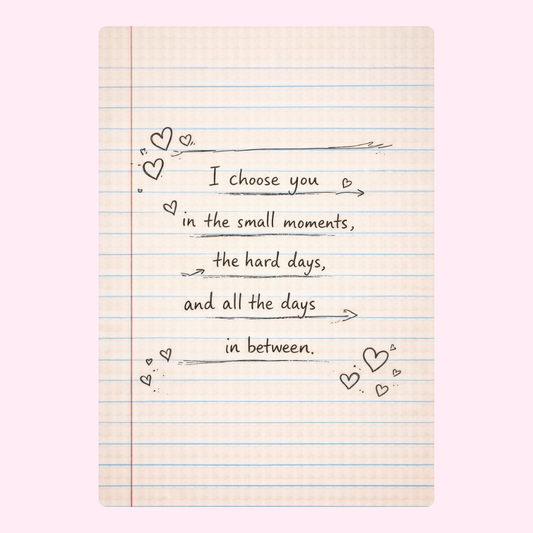 I choose you
in the small moments,
the hard days,
and all the days
in between.